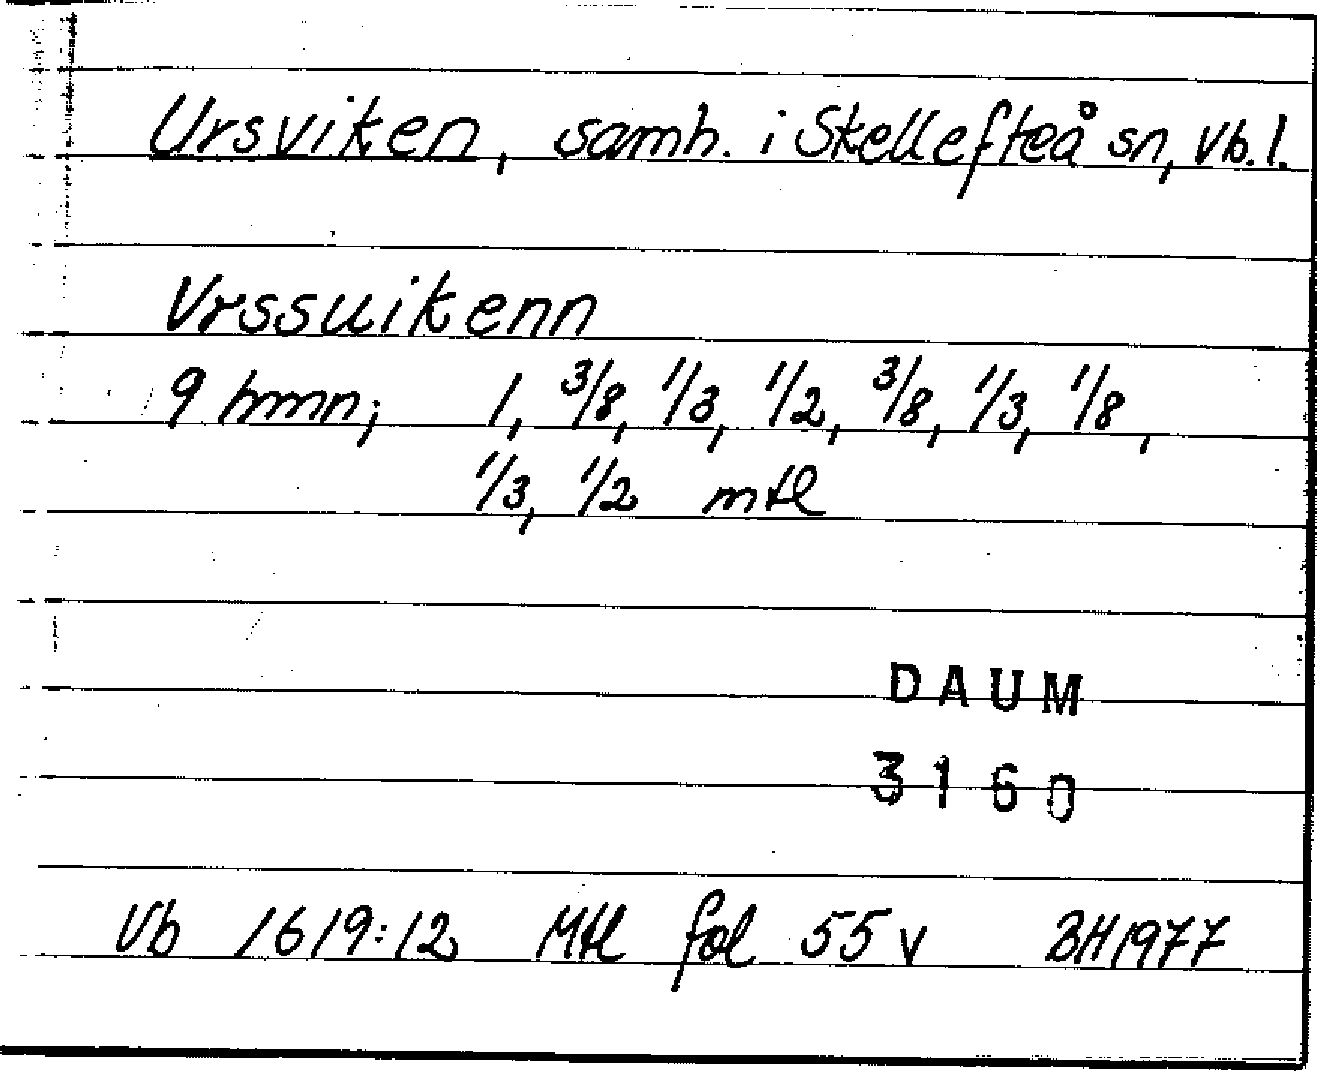 Ursviken, samh. i Skellefteå sn, Vb. l.
Vrssuikenn
9 hmn; 1, 3/8, 1/3, 1/2, 3/8, 1/3, 1/8,
1/3, 1/2 mtl
DAUM
3160
Vb 1619:12 Mtl fol 55 v BH 1977